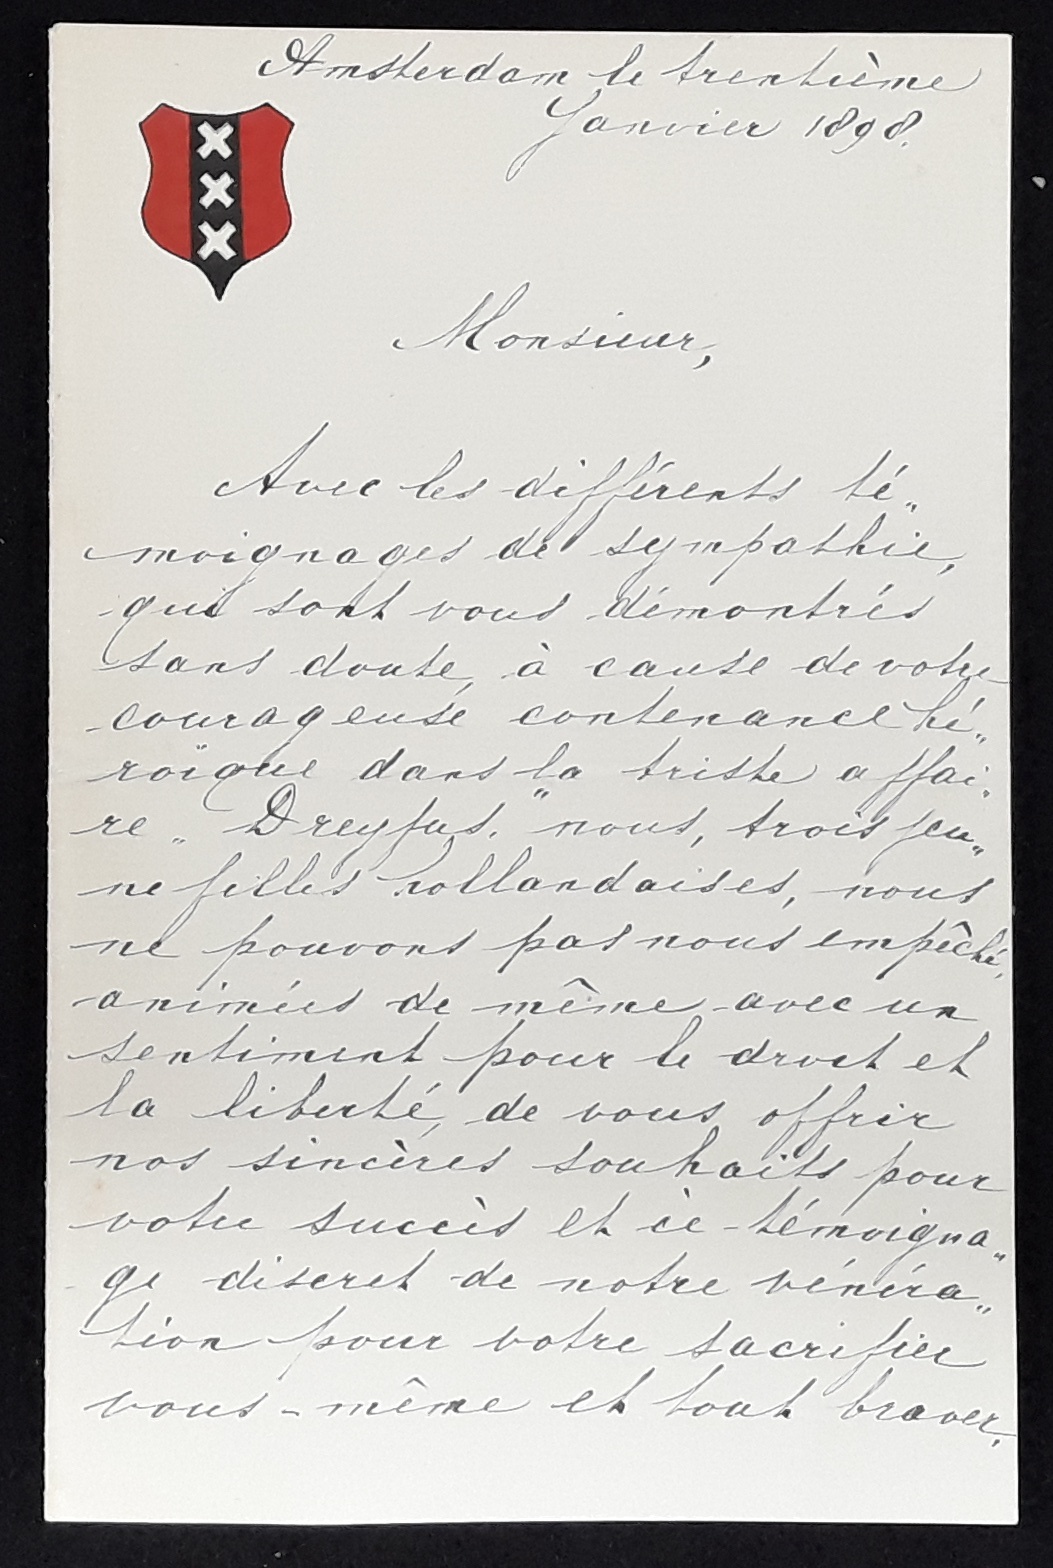 Amsterdam le trentième
Janvier 1898.
Monsieur,
Avec les différents té„
moignages de sympathie,
qui sont vous démontrés
sans doute, à cause de votre
courageuse contenance hé„
roïque dans „la triste affai„
re„ Dreyfus. nous, trois jeu„
ne filles hollandaises, nous
ne pouvons pas nous empêché,
animées de même avec un
sentiment pour le droit et
la liberté, de vous offrir
nos sincères souhaits pour
votre succès et cè témoigna„
ge discret de notre vénéra„
tion pour votre sacrifier
vous-même et tout braver.